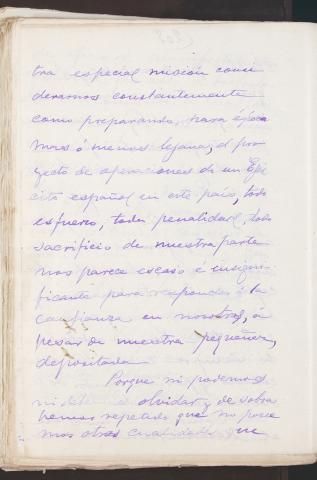 tra especial misión consi
deramos constantemente
como preparando, para época
mas ó menos lejana, el pro
yecto de operaciones de un Ejér
cito español en este país, todo
esfuerzo, toda penalidad, todo
sacrificio de nuestra parte
nos parece escaso é insigni-
ficante para responder á la
confianza en nosotros, á
pesar de nuestra pequeñez,
depositada
Porque ni podemos
ni debe olvidar y de sobra
hemos repetido que no posee
mos otras cualidades que